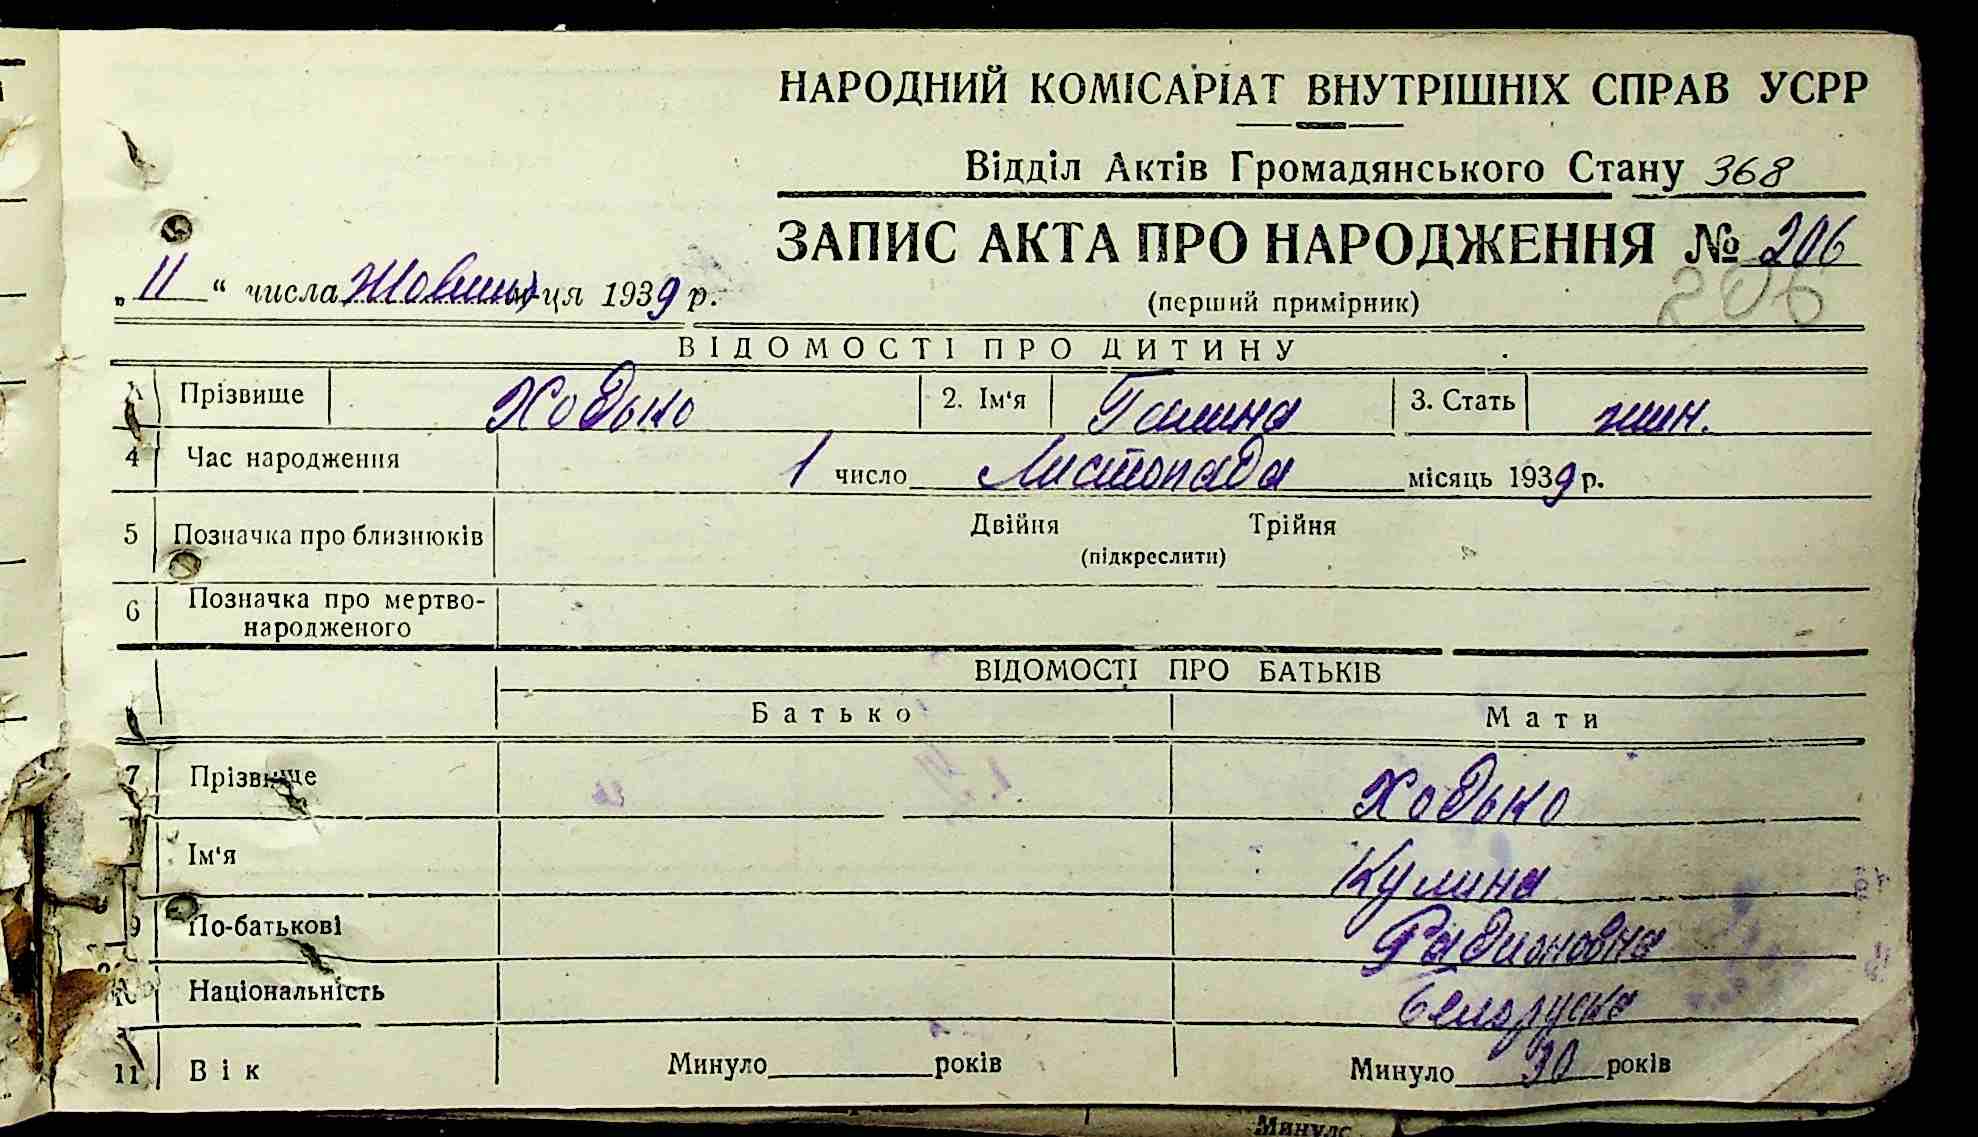 НАРОДНИЙ КОМІСАРІАТ ВНУТРІШНІХ СПРАВ УСРР
Відділ Актів Громадянського Стану 368
ЗАПИС АКТА ПРО НАРОДЖЕННЯ № 206
„11“ числа Жовтня м-ця 1939 р.
(перший примірник)
206
ВІДОМОСТІ ПРО ДИТИНУ
1 Прізвище Ходько 2. Ім'я Галина 3. Стать жин.
4 Час народження 1 число Листопада місяць 1939 р.
5 Позначка про близнюків Двійня Трійня
(підкреслити)
6 Позначка про мертво-
народженого
ВІДОМОСТІ ПРО БАТЬКІВ
Батько Мати
7 Прізвище Ходько
Ім'я Кулина
9 По-батькові Радионовна
10 Національність белоруска
11 Вік Минуло років Минуло 30 років
Минуло